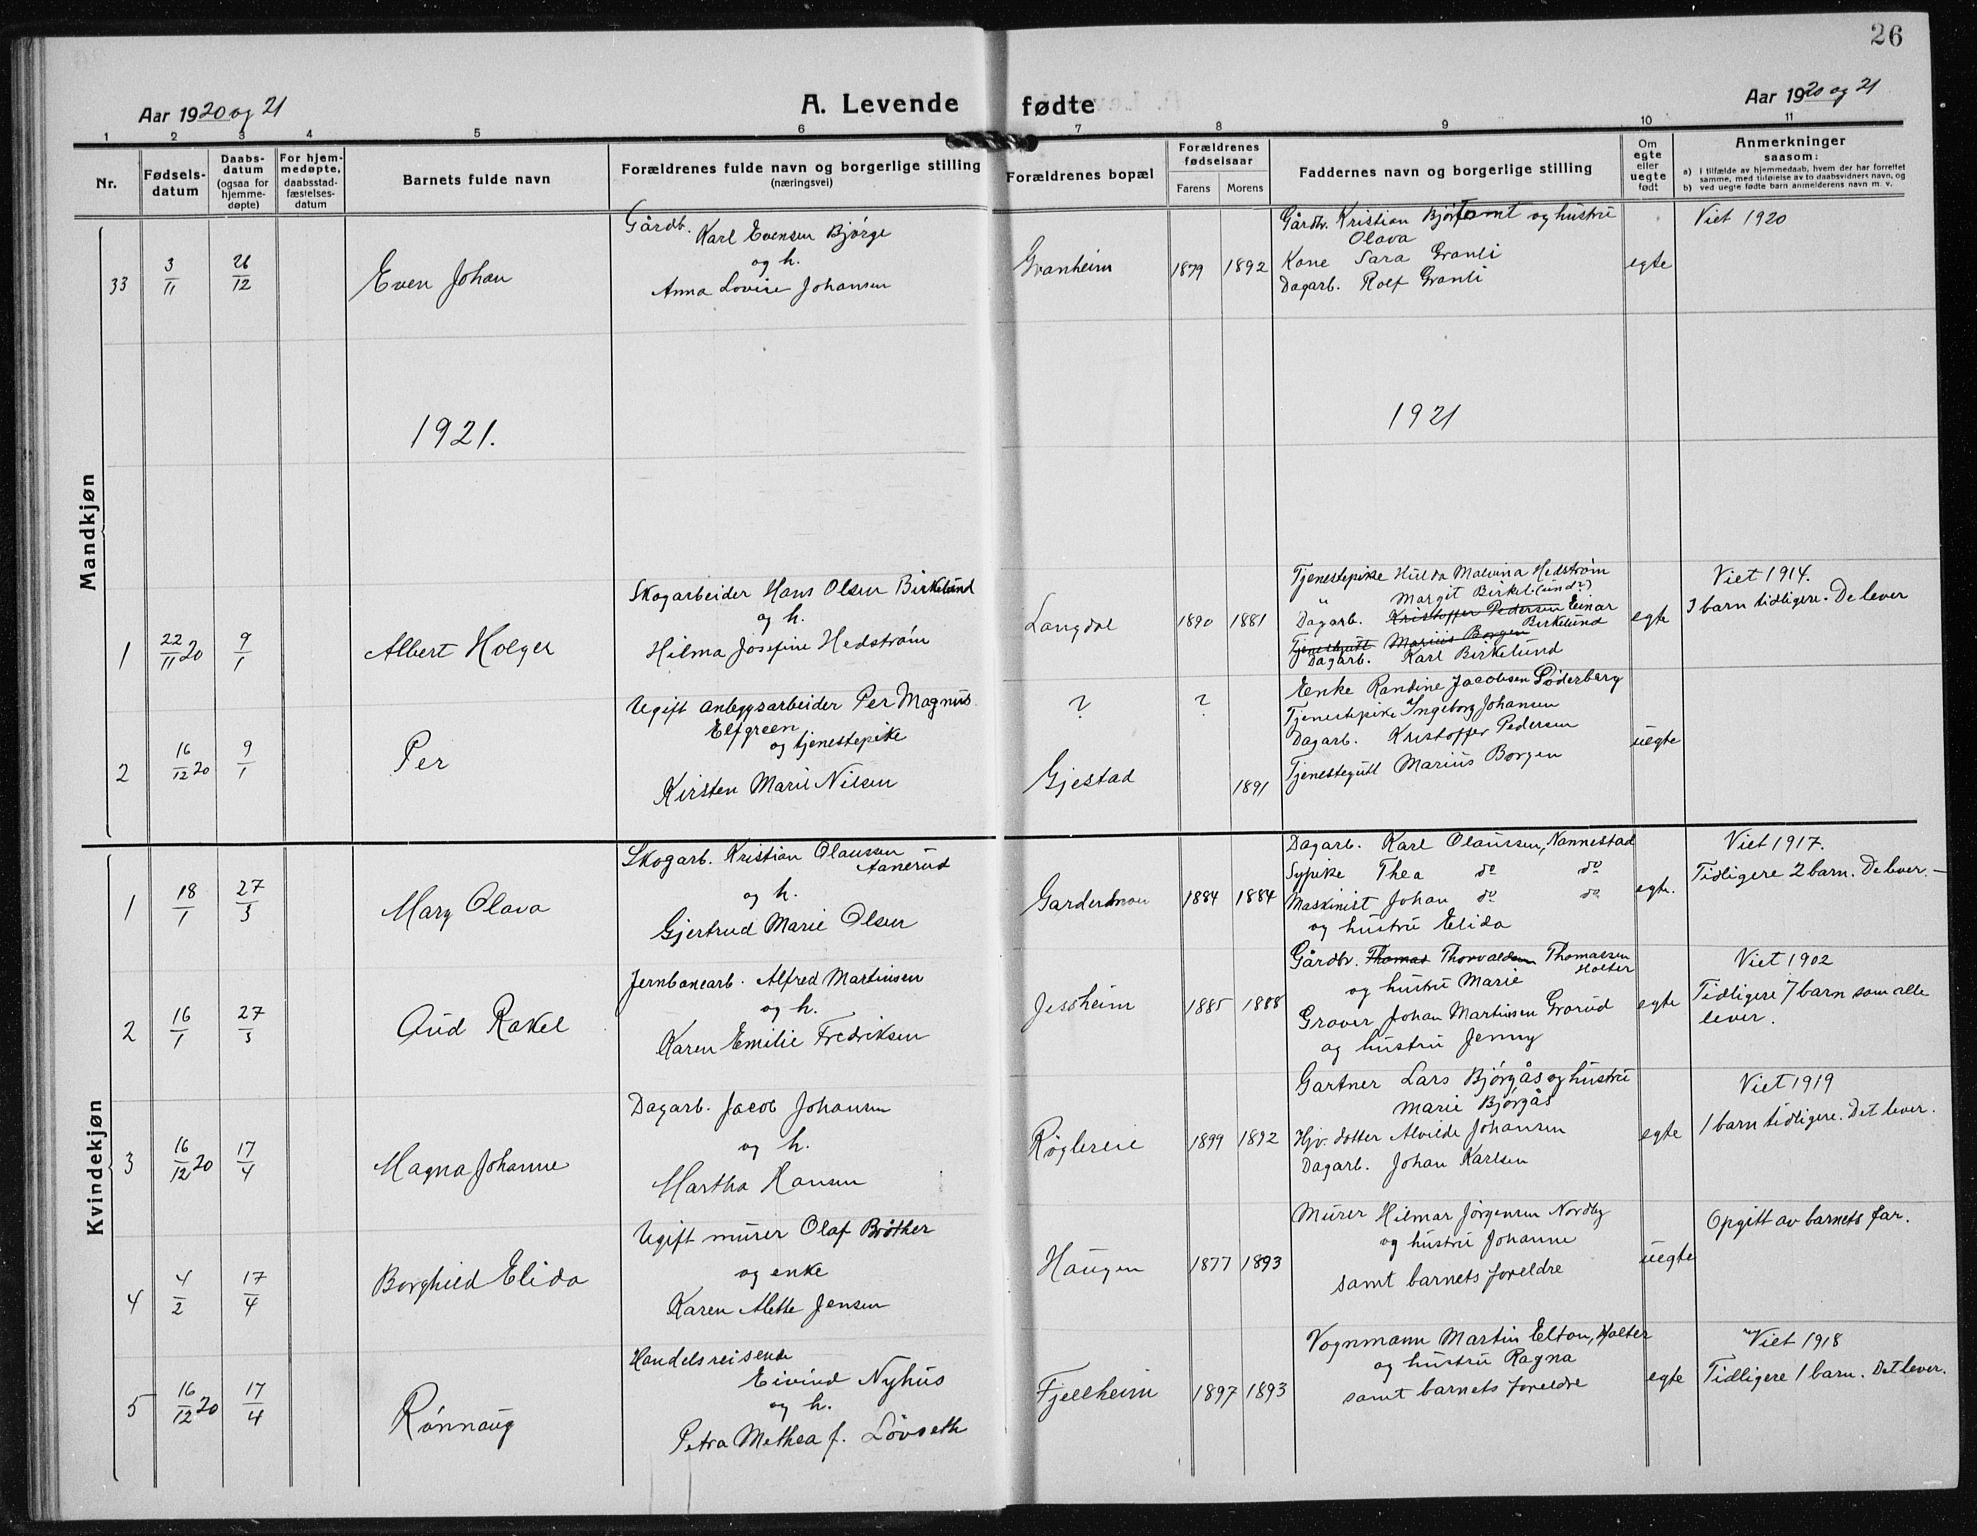 26
Aar 1920 og 21
A. Levende fødte
Aar 1920 og 21
1 2 3 4 5 6 7 8 9 10 11
Nr.
Fødsels-
datum
Daabs-
datum
(ogsaa for
hjemme-
døpte)
For hjem-
medøpte,
daabsstad-
fæstelses-
datum
Barnets fulde navn
Forældrenes fulde navn og borgerlige stilling
(næringsvei)
Forældrenes bopæl
Forældrenes
fødselsaar
Farens Morens
Faddernes navn og borgerlige stilling
Om
egte
eller
uegte
født
Anmerkninger
saasom:
a) i tilfælde av hjemmedaab, hvem der har forrettet
samme, med tilføielse av to daabsvidners navn, og
b) ved uegte fødte barn anmelderens navn m. v.
Mandkjøn
33 3/11 26/12 Even Johan
Gårdb.
Karl Evensen Bjørge
og h.
Anna Lovise Johansen
Granheim 1879 1892
Gårdbr. Kristian Bjørtomt og hustru
Olava
Kone Sara Granli
Dagarb. Rolf Granli
egte
Viet 1920
1921. 1921
1 22/11 20 9/1 Albert Holger
Skogarbeider Hans Olsen Birkelund
og h.
Hilma Josefine Hedstrøm
Langdal 1890 1881
Tjenestepike Hulda Malvina Hedstrøm
" Margit Birkel(und?)
Dagarb. Kristoffer Pedersen Einar
Birkelund
Tjenestegutt Marius Borgen
Dagarb. Karl Birkelund
egte
Viet 1914.
3 barn tidligere. De lever
2 16/12 20 9/1 Per
Ugift anleggsarbeider Per Magnus
Elfgreen
og tjenestepike
Kirsten Marie Nilsen
? ?
Gjestad 1891
Enke Randine Jacobsen Søderberg
Tjenestepike Ingeborg Johansen
Dagarb. Kristoffer Pedersen
Tjenestegutt Marius Borgen
uegte
Kvindekjøn
1 18/1 27/3 Mary Olava
Skogarb. Kristian Olaussen
Aanerud
og h.
Gjertrud Marie Olsen
1884 1884
Dagarb. Karl Olaussen, Nannestad
Sypike Thea do do
Maskinist Johan do do
og hustru Elida
egte.
Viet 1917.
Tidligere 2 barn. De lever. —
2 16/1 27/3 Aud Rakel
Jernbanearb. Alfred Martinsen
og h.
Karen Emilie Fredriksen
Jessheim 1885 1888
Gårdbr. Thomas Thorvaldsen Thomassen
Holter
og hustru Marie
Graver Johan Martinsen Grorud
og hustru Jenny
egte
Viet 1902
Tidligere 7 barn som alle
lever.
3 16/12 20 17/4 Magna Johanne
Dagarb. Jacob Johansen
og h.
Martha Hansen
Røglereie 1899 1892
Gartner Lars Bjørgås og hustru
Marie Bjørgås
Hjv. dotter Alvilde Johansen
Dagarb. Johan Karlsen
egte
Viet 1919
1 barn tidligere. Det lever.
4 4/2 17/4 Borghild Elida
Ugift murer Olaf Bråther
og enke
Karen Alette Jensen
Haugen 1877 1893
Murer Hilmar Jørgensen Nordby
og hustru Johanne
samt barnets foreldre
uegte
Opgitt av barnets far.
5 16/12 20 17/4 Rønnaug
Handelsreisende
Eivind Nyhus
og h.
Petra Methea f. Løvseth
Fjellheim 1897 1893
Vognmann Martin Elton, Holter
og hustru Ragna
samt barnets foreldre
egte
Viet 1918
Tidligere 1 barn. Det lever.